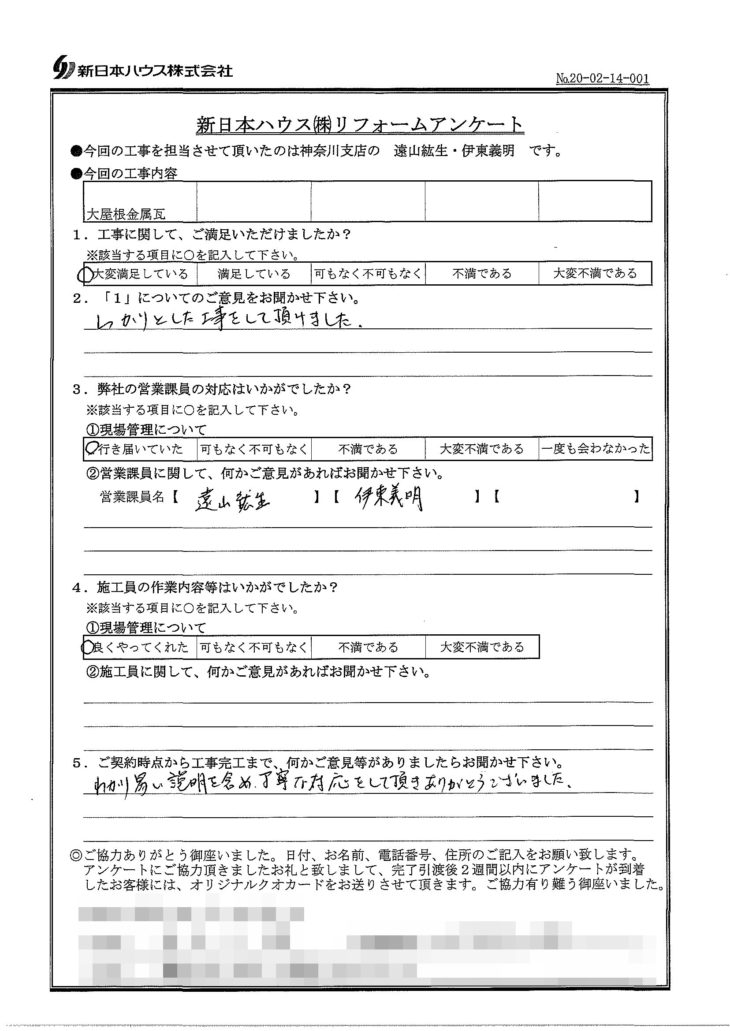 新日本ハウス株式会社
No.20-02-14-001
新日本ハウス㈱リフォームアンケート
●今回の工事を担当させて頂いたのは神奈川支店の 遠山紘生・伊東義明 です。
●今回の工事内容
大屋根金属瓦
1．工事に関して、ご満足いただけましたか？
※該当する項目に○を記入して下さい。
大変満足している 満足している 可もなく不可もなく 不満である 大変不満である
2．「1」についてのご意見をお聞かせ下さい。
しっかりとした工事をして頂けました.
3．弊社の営業課員の対応はいかがでしたか？
※該当する項目に○を記入して下さい。
①現場管理について
行き届いていた 可もなく不可もなく 不満である 大変不満である 一度も会わなかった
②営業課員に関して、何かご意見があればお聞かせ下さい。
営業課員名【 遠山紘生 】【 伊東義明 】【 】
4．施工員の作業内容等はいかがでしたか？
※該当する項目に○を記入して下さい。
①現場管理について
良くやってくれた 可もなく不可もなく 不満である 大変不満である
②施工員に関して、何かご意見があればお聞かせ下さい。
5．ご契約時点から工事完工まで、何かご意見等がありましたらお聞かせ下さい。
わかり易い説明を含め、丁寧な対応をして頂きありがとうございました.
◎ご協力ありがとう御座いました。日付、お名前、電話番号、住所のご記入をお願い致します。
アンケートにご協力頂きましたお礼と致しまして、完了引渡後2週間以内にアンケートが到着
したお客様には、オリジナルクオカードをお送りさせて頂きます。ご協力有り難う御座いました。